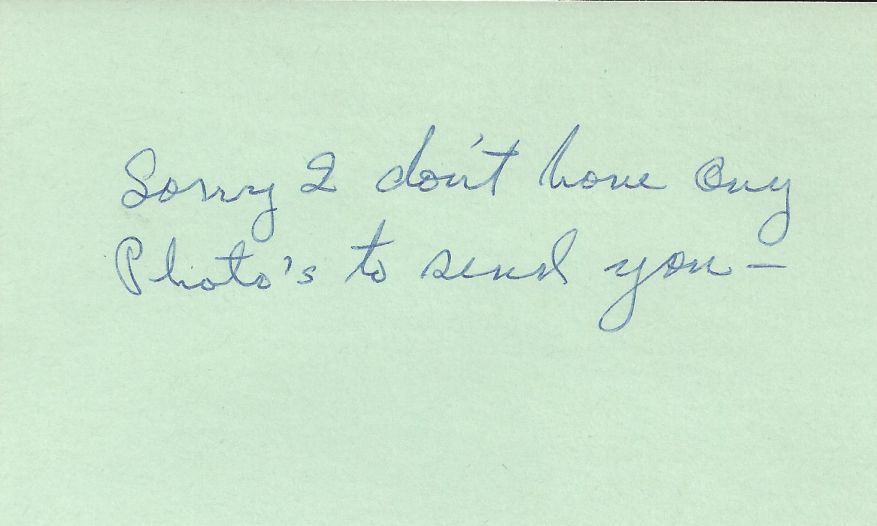 Sorry I don't have any
Photo's to send you —